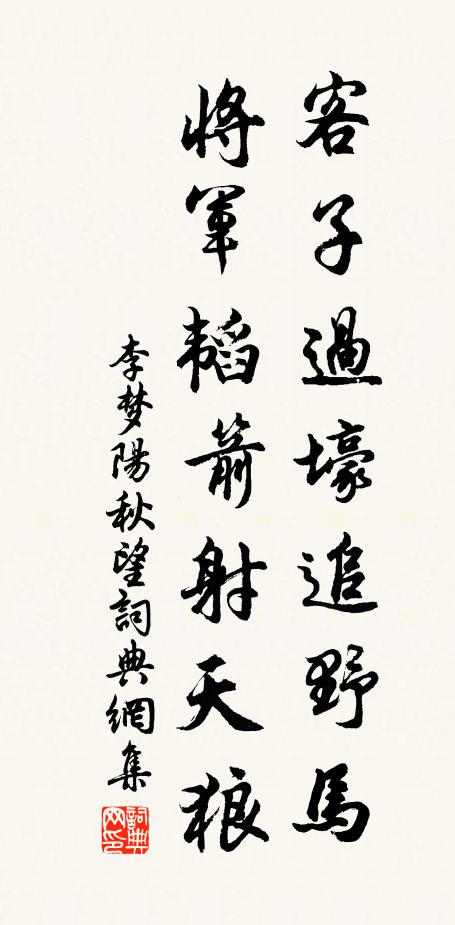 客子過壕追野馬
將軍韬箭射天狼
李梦陽秋望詞典網集
詞典网印